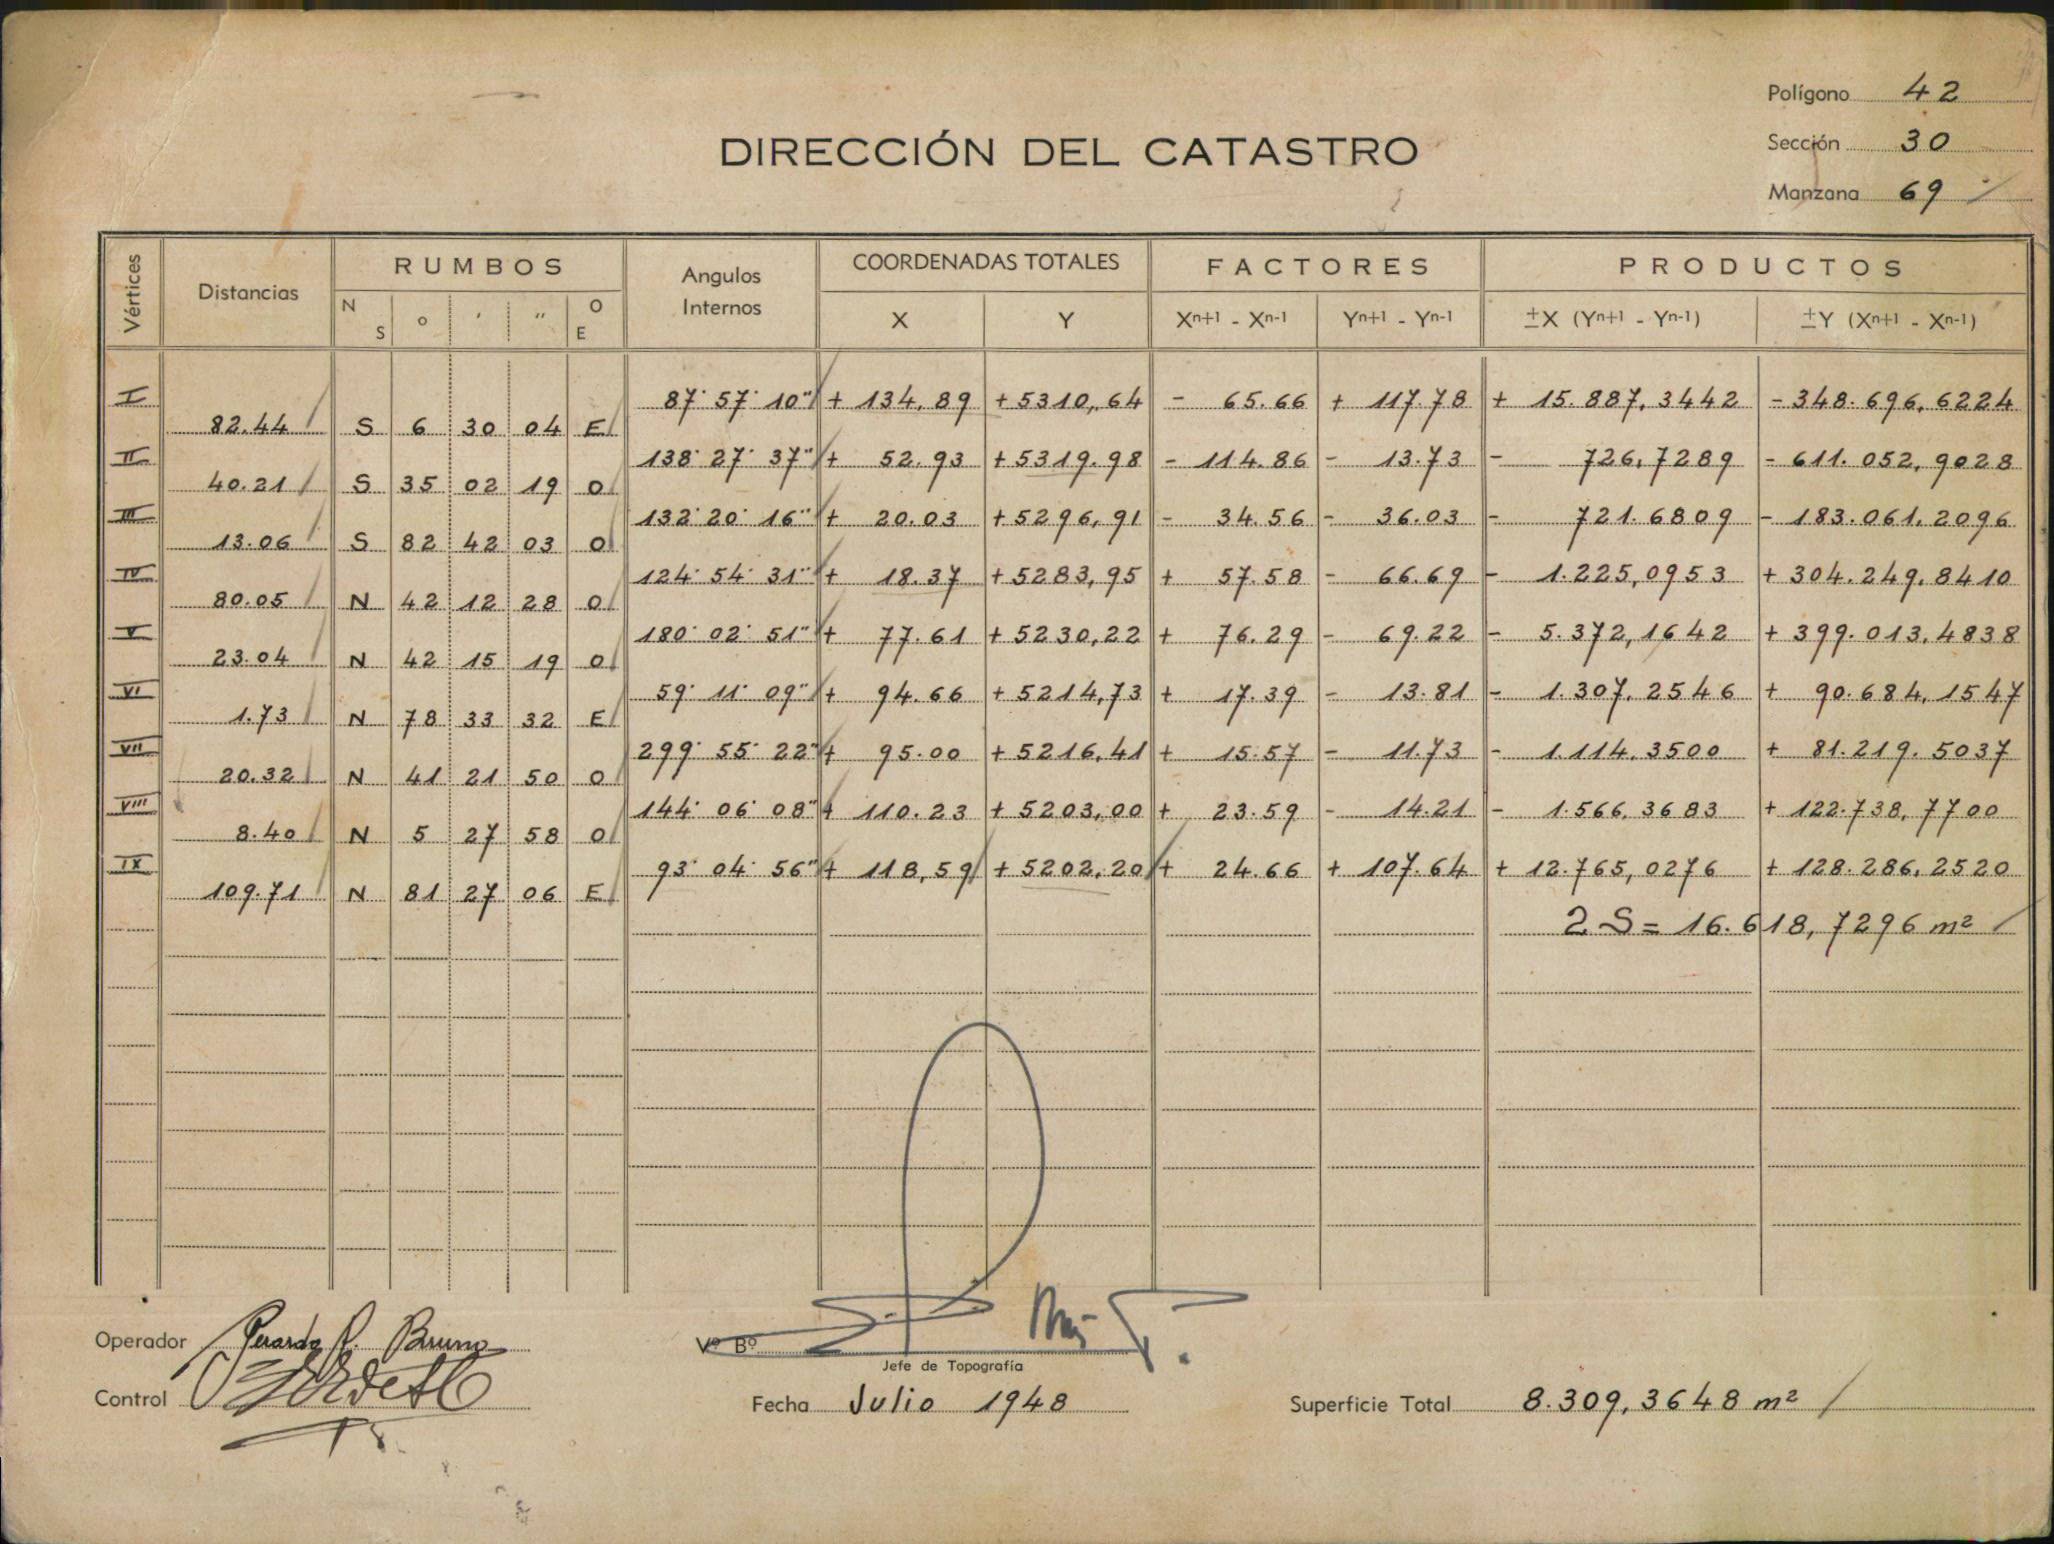 Polígono 42
DIRECCIÓN DEL CATASTRO
Sección 30
Manzana 69
Vértices Distancias RUMBOS Angulos Internos COORDENADAS TOTALES FACTORES PRODUCTOS
N S ° ' " O E X Y Xn+1 - Xn-1 Yn+1 - Yn-1 ±X (Yn+1 - Yn-1) ±Y (Xn+1 - Xn-1)
I 87° 57' 10" + 134,89 + 5310,64 - 65.66 + 117.78 + 15.887,3442 - 348.696,6224
82.44 S 6 30 04 E
II 138° 27' 37" + 52.93 + 5319.98 - 114.86 - 13.73 - 726,7289 - 611.052,9028
40.21 S 35 02 19 O
III 132° 20' 16" + 20.03 + 5296,91 - 34.56 - 36.03 - 721.6809 - 183.061.2096
13.06 S 82 42 03 O
IV 124° 54' 31" + 18.37 + 5283,95 + 57.58 - 66.69 - 1.225,0953 + 304.249.8410
80.05 N 42 12 28 O
V 180° 02' 51" + 77.61 + 5230,22 + 76.29 - 69.22 - 5.372,1642 + 399.013.4838
23.04 N 42 15 19 O
VI 59° 11' 09" + 94.66 + 5214,73 + 17.39 - 13.81 - 1.307.2546 + 90.684,1547
1.73 N 78 33 32 E
VII 299° 55' 22" + 95.00 + 5216,41 + 15.57 - 11.73 - 1.114.3500 + 81.219.5037
20.32 N 41 21 50 O
VIII 144° 06' 08" + 110.23 + 5203,00 + 23.59 - 14.21 - 1.566.3683 + 122.738,7700
8.40 N 5 27 58 O
IX 93° 04' 56" + 118,59 + 5202,20 + 24.66 + 107.64 + 12.765,0276 + 128.286.2520
109.71 N 81 27 06 E
2 S = 16.618,7296 m²
Operador Gerardo R. Bruno
Vº Bº
Jefe de Topografía
Control
Fecha Julio 1948
Superficie Total 8.309,3648 m²